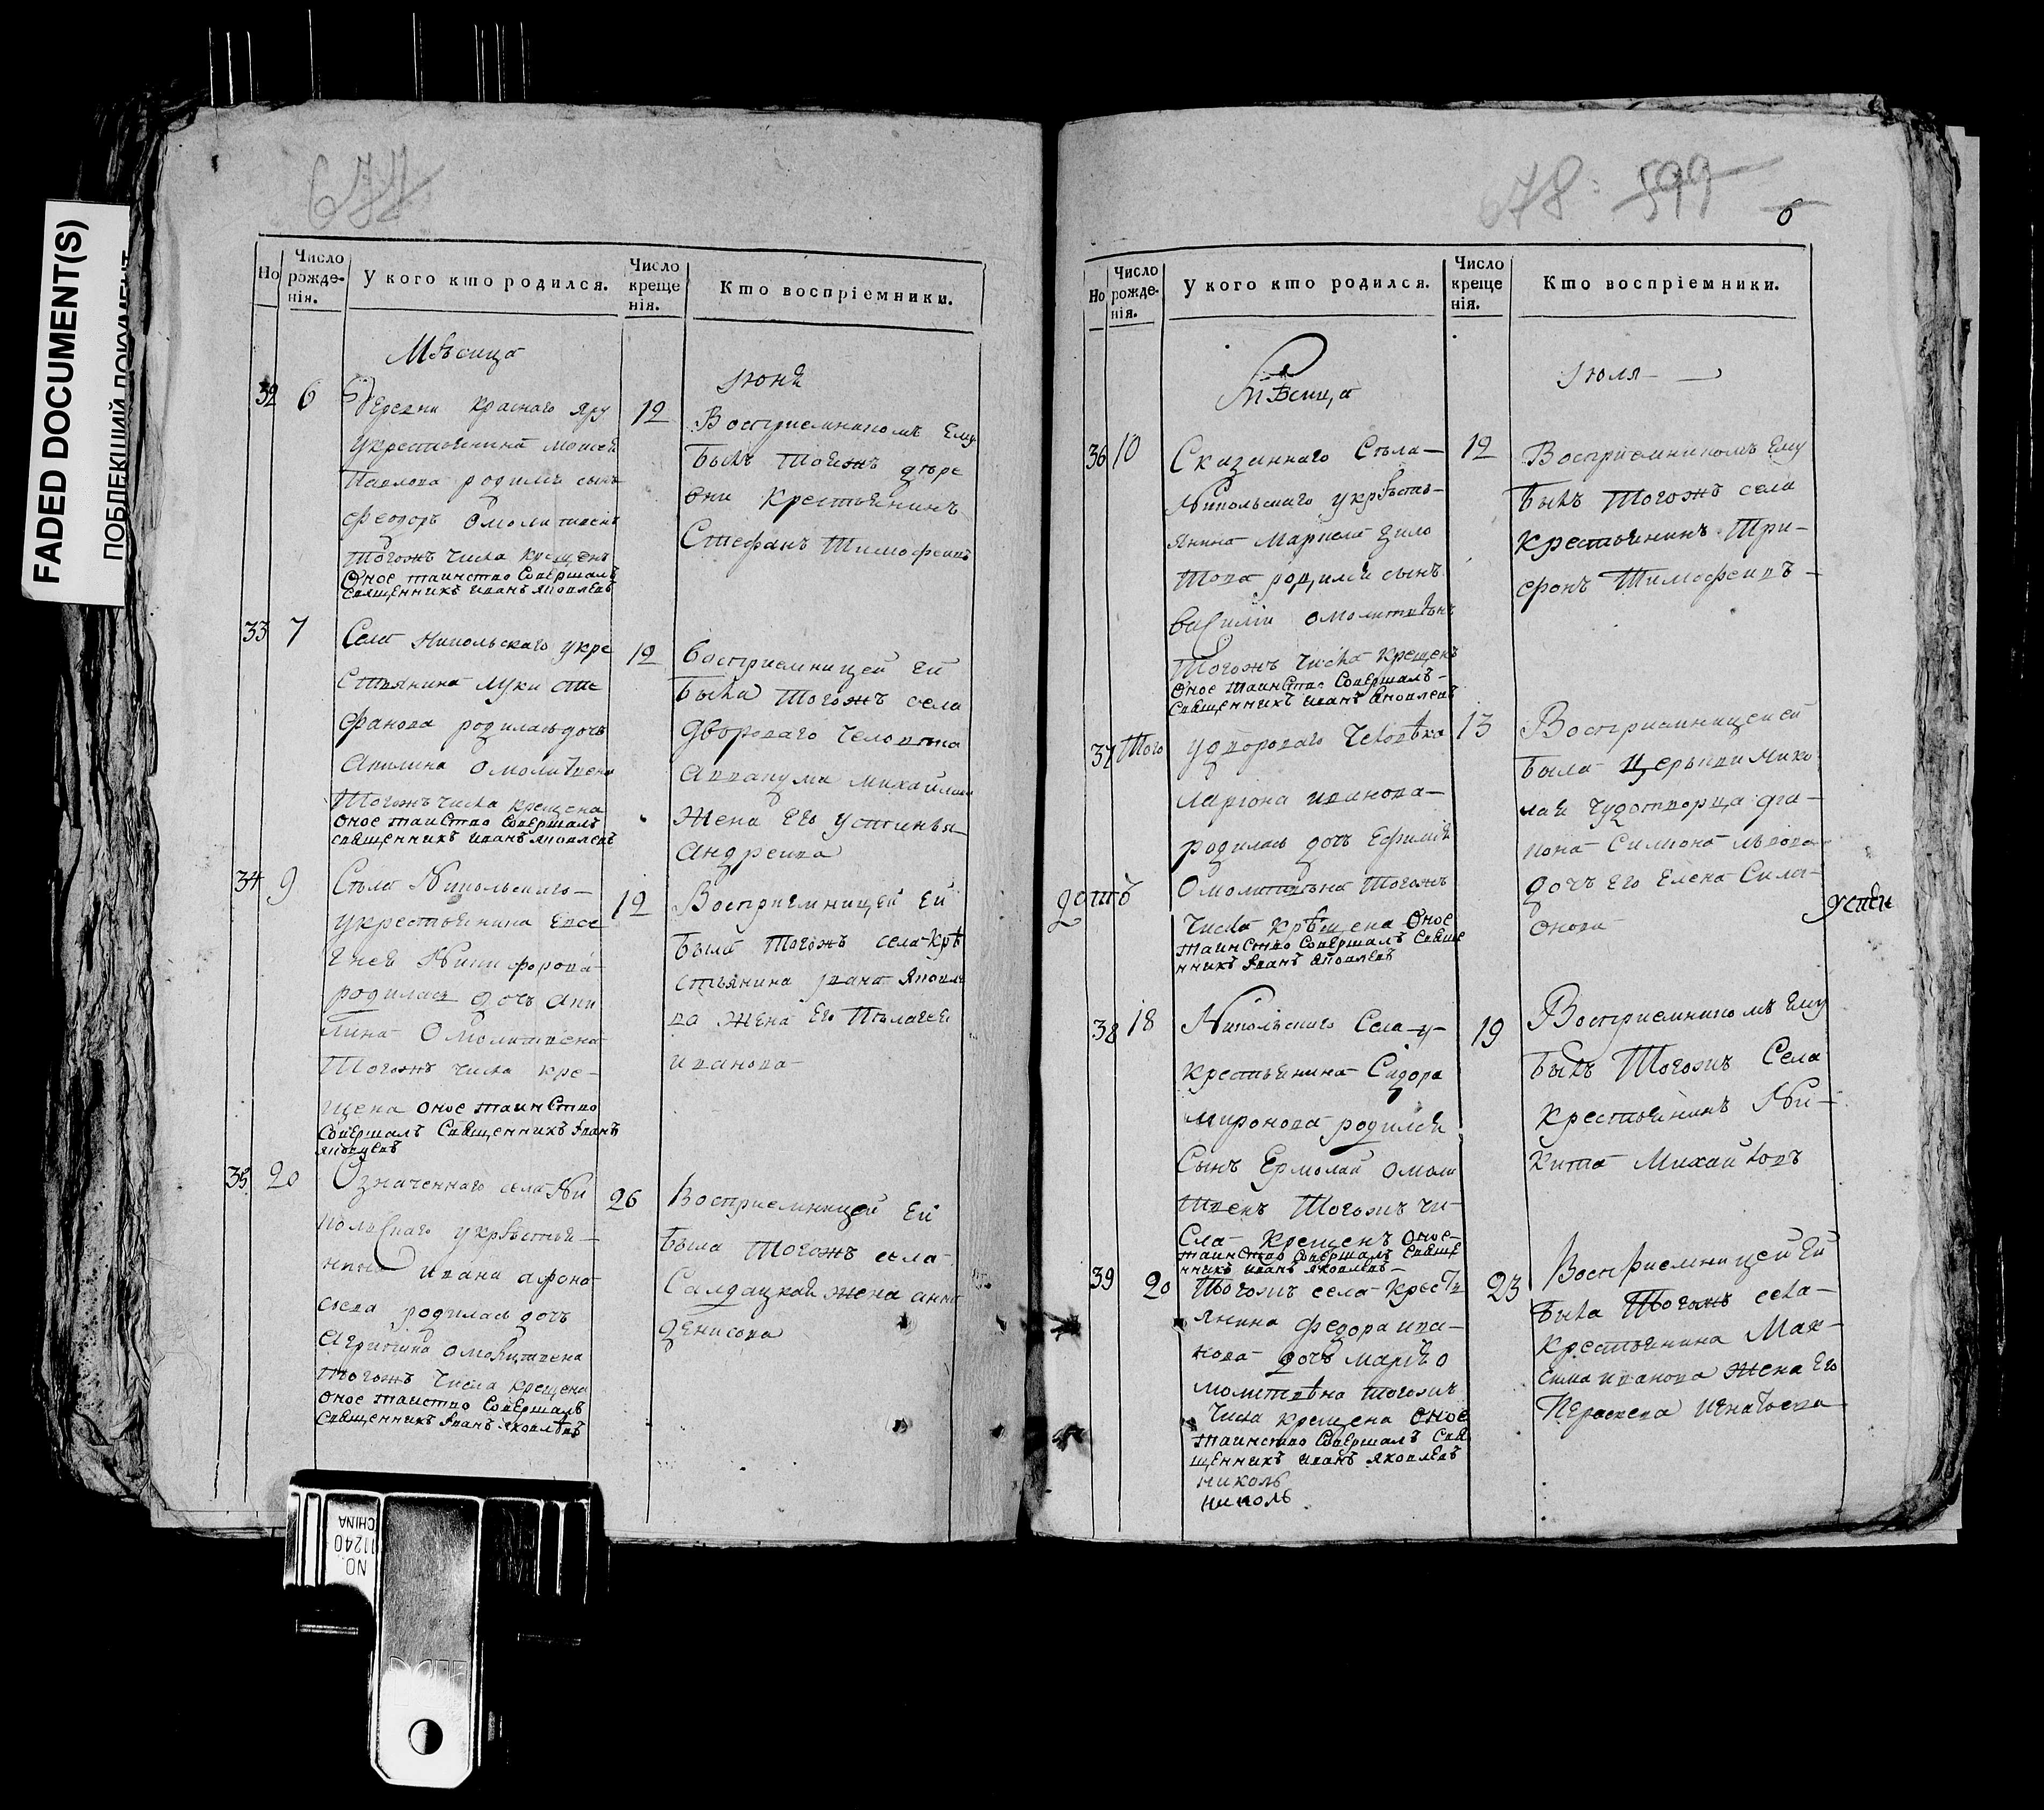 FADED DOCUMENT(S)
ПОБЛЕКШИЙ ДОКУМЕНТ
677
Но
Число рожденія.
У кого кто родился.
Число крещенія.
Кто воспріемники.
Мѣсяца
июня
32 6
Деревни Красного яру
укрестьянина Моисея
Павлова родился сынъ
Феодоръ омолитвенъ
тогожъ числа крещенъ
Оное таинство совершалъ
священникъ иванъ яковлевъ
12
Восприемникомъ ему
былъ тогожъ дере
вни крестьянинъ
Стефанъ Тимофеевъ
33 7
Села никольскаго укре
стьянина луки сте
фанова родилась дочь
Акилина омолитвена
тогожъ числа крещена
оное таинство совершалъ
священникъ иванъ яковлевъ
12
восприемницей ей
была тогожъ села
дворового человека
Аввакума михайлова
жена его устинья
Андреева
34 9
Села Никольскаго
укрестьянина Евсе
Никифорова
родилась дочь Аки
лина омолитвена
тогожъ числа кре-
щена оное таинство
совершалъ священникъ Iванъ
яковлевъ
12
Восприемницей ей
была тогожъ села крѣ
стьянина ивана яковле
ва жена его Пелагея
иванова
35 20
Означенного села Ни
кольскаго укрѣстья-
нина ивана афона
сьева родилась дочь
омолитвена
тогожъ числа крещена
оное таиство совершалъ
священникъ Iванъ яковлѣвъ
26
Восприемницей ей
была тогожъ села
Салдацкая жена анна
денисова
678 599
6
Но
Число рожденія.
У кого кто родился.
Число крещенія.
Кто воспріемники.
Мѣсяца
июля
36 10
Сказаннаго Села-
Никольскаго укрѣсть-
янина
родился сынъ
василии омолитвѣнъ
тогожъ числа крещенъ
оное таинство совершалъ-
священникъ иванъ яковлевъ
12
Восприемникомъ ему
былъ тогожъ села
крестьянинъ Три-
фонъ Тимофеевъ-
37 того
удворового человѣка
лариона иванова-
родилась дочь Ефимия
омолитвена тогожъ
числа крѣщена оное
таинство совершалъ свяще
нникъ Iванъ яковлевъ
13
Восприемницей ей
была церькви нико
лая чудотворца дья-
кона
дочь его елена
38 18
Никольского Села у-
крестьянина Сидора
миронова родился
Сынъ Ермолай омоли
твенъ тогожъ чи-
сла крещенъ оное-
таинство совершалъ свяще
нникъ иванъ яковлевъ-
19
Восприемникомъ ему
былъ тогожъ Села
крестьянинъ Ни-
кита Михайловъ
39 20
тогожъ села крестъ
янина федора ива-
нова дочь марья о
молитвѣна тогожъ
числа крещена оное
таинство совершалъ свя
щенникъ иванъ яковлевъ
николь
николь
23
Восприемницей ей
была тогожъ села-
крестьянина Мак-
сима иванова жена его
Пераскева игнатьева